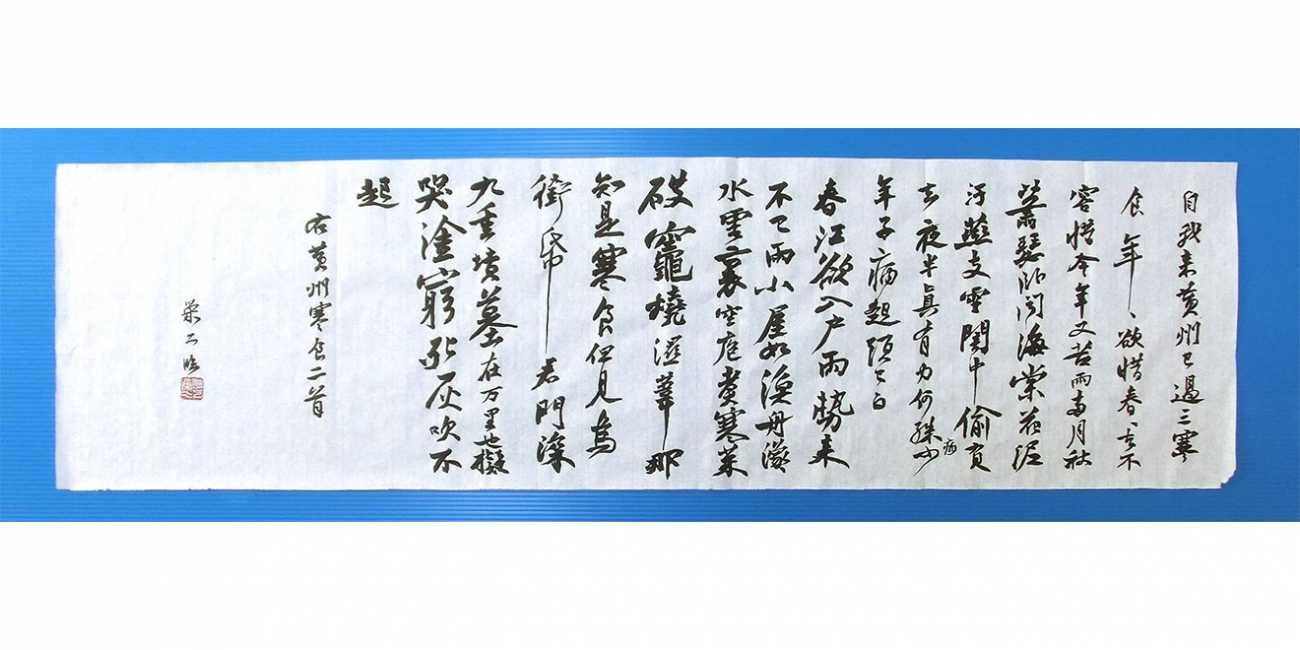 自我来黄州已過三寒
食年、欲惜春、去不
容惜今年又苦雨兩月秋
蕭瑟卧聞海棠花泥
汙燕支雪闇中偷負
去夜半眞有力何殊少
病
年子病起頭已白
春江欲入户雨勢来
不已雨小屋如漁舟濛
水雲裏空庖煮寒菜
破竈燒濕葦那
知是寒食但見烏
銜帋君門深
九重墳墓在万里也擬
哭塗窮死灰吹不
起
右黄州寒食二首
臨